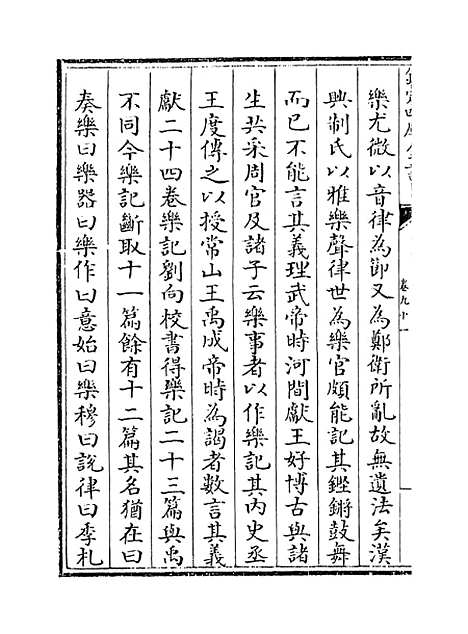 樂尤微以音律為節又為鄭衛所亂故無遺法矣漢
興制氏以雅樂聲律世為樂官頗能記其鏗鏘鼓舞
而已不能言其義理武帝時河間獻王好博古與諸
生共采周官及諸子云樂事者以作樂記其内史丞
王度傳之以授常山王禹成帝時為謁者數言其義
獻二十四卷樂記劉向校書得樂記二十三篇與禹
不同今樂記斷取十一篇餘有十二篇其名猶在曰
奏樂曰樂器曰樂作曰意始曰樂穆曰說律曰季札
卷九十一